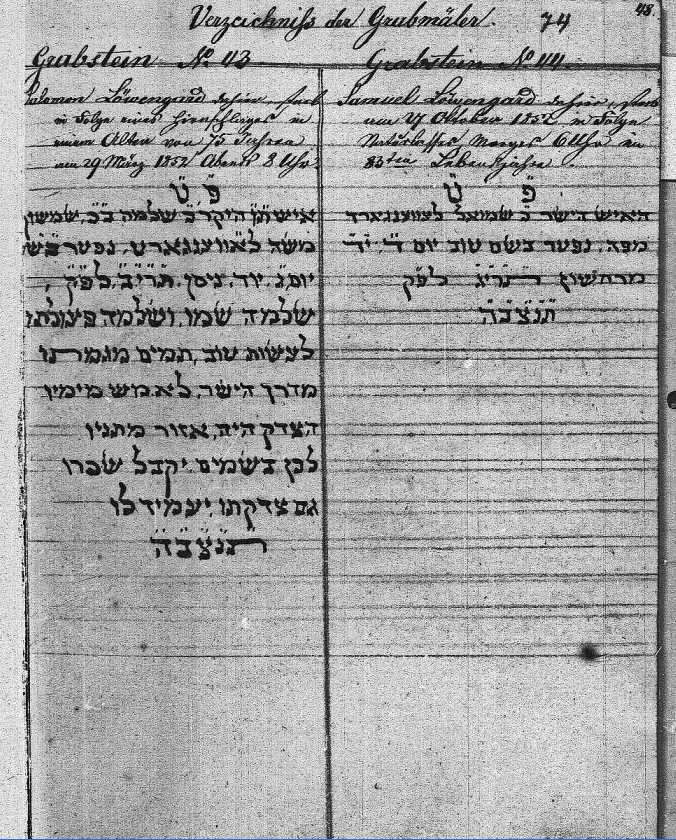 48.
Verzeichniß der Grabmäler. 74
Grabstein No 43
Salomon Löwengard dahier, starb
in Folge eines Hirnschlages in
einem Alter von 75 Jahren
am 29 März 1852 Abends 8 Uhr.
פ״ ט״
איש תן היקר כ׳ שלמה ב״כ שמשון
משה לאווענגארט, נפטר
יום ג׳ יוד ניסן תרי״ב לפ״ק
שלמה שמו, ושלמה פעולתו
לעשות טוב, תמים מגמרתו
מדרך הישר, לא מש מימיו
הצדק היה, אזור מתניו
לכן בשמים יקבל שכרו
גם צדקתו יעמיד לו
תנצבה
Grabstein No 44.
Samuel Löwengard dahier, starb
am 27 Oktober 1852 in Folge
Morgens 6 Uhr im
83ten Lebensjahre
פ״ ט״
האיש הישר כ׳ שמואל לעווענגארד
מפה, נפטר בשם טוב יום ד׳ י״ד
מרחשון תרי״ג לפ״ק
תנצבה